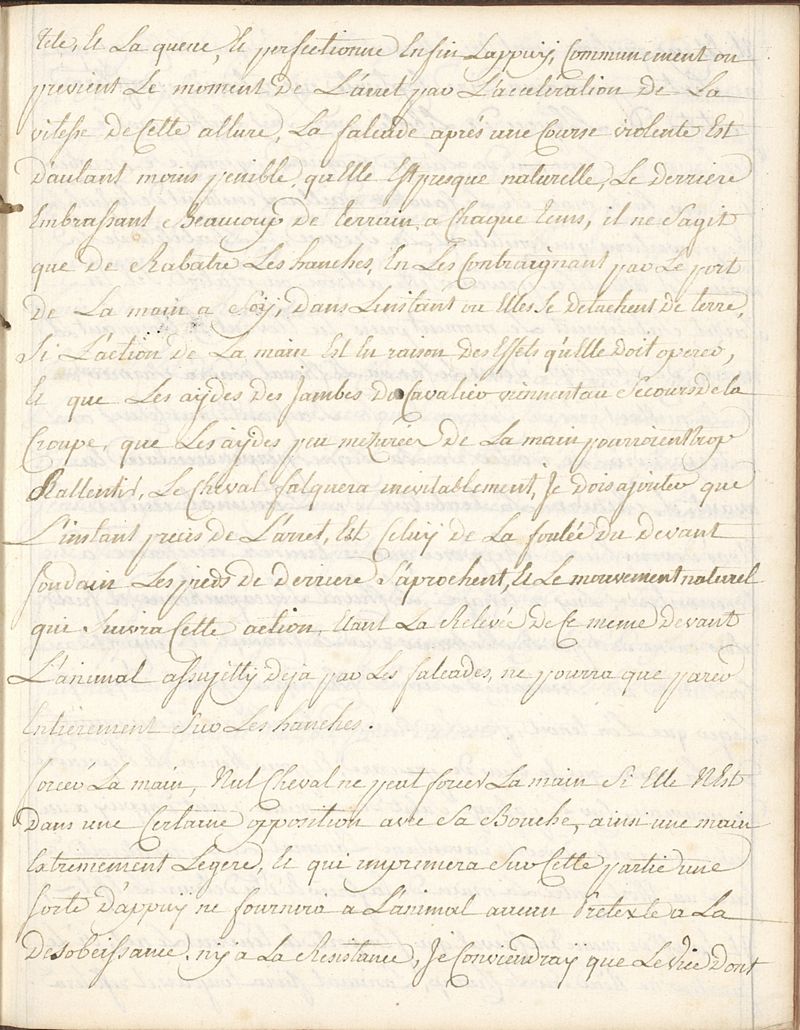 tete, et La queue, et perfectionne Enfin Lappuy, Communement on
previent Le moment de L'arret par L'acceleration de La
vitesse de Cette allure, La falcade aprés une Course violente Est
D'autant moins penible, qu'elle Est presque naturelle, Le derriere
Embrassant Beaucoup de terrain a Chaque tems, il ne S'agit
que de Rabatre Les hanches, En Les Contraignant par Le port
de La main a Soy, Dans L'instant ou Elles Se detachent de terre,
Si L'action de La main Est En raison des Effets qu'Elle doit operer,
et que Les aydes des jambes du Cavalier viennent au Secours de la
Croupe, que Les aydes peu mezurées de La main pourroient trop
Rallentir, Le Cheval falquera inevitablement, Je dois ajouter que
L'instant precis de L'arret, Est Celuy de La foulée du devant
Soudain Les pieds de derriere S'aprochent, et Le mouvement naturel
qui Suivra Cette action, Etant La Relevée de Ce meme devant
L'animal assujetty deja par Les falcades, ne pourra que parer
Entierement Sur Les hanches.
forcer La main, Nul Cheval ne peut forcer La main Si Elle N'Est
Dans une Certaine opposition avec Sa Bouche, ainsi une main
Extremement Legere, et qui imprimera Sur Cette partie une
Sorte D'appuy ne fournira a L'animal aucun Pretexte a La
Desobeissance, ny a La Resistance, Je Conviendray que Le vice Dont